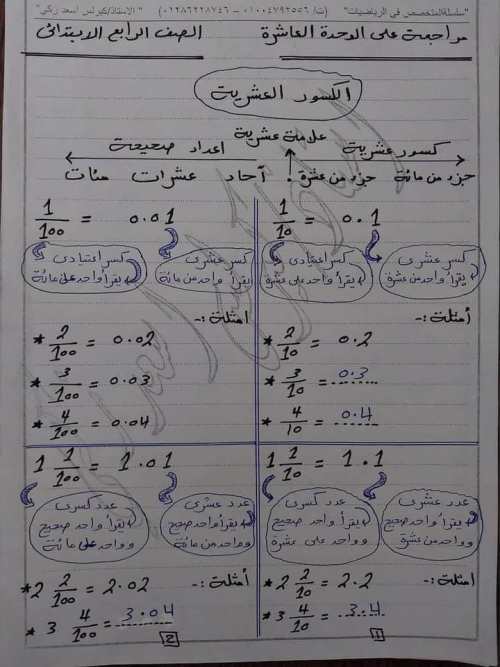 "سلسلة المتخصص في الرياضيات" (ت/ ٠١٠٠٤٧٩٢٥٥٦ - ٠١٢٨٦٢٢٨٧٤٦) "الاستاذ/كيرلس اسعد زكي"
مراجعة على الوحدة العاشرة الصف الرابع الابتدائى
الكسور العشرية
كسور عشرية علامة عشرية اعداد صحيحة
جزء من مائة جزء من عشرة . آحاد عشرات مئات
1/10 = 0.1
كسر عشرى
يقرأ واحد من عشرة
كسر اعتيادى
يقرأ واحد على عشرة
أمثلة:-
* 2/10 = 0.2
* 3/10 = 0.3
* 4/10 = 0.4
1/100 = 0.01
كسر عشرى
يقرأ واحد من مائة
كسر اعتيادى
يقرأ واحد على مائة
امثلة:-
* 2/100 = 0.02
* 3/100 = 0.03
* 4/100 = 0.04
1 1/10 = 1.1
عدد عشرى
يقرأ واحد صحيح
وواحد من عشرة
عدد كسرى
يقرأ واحد صحيح
وواحد على عشرة
امثلة:-
* 2 2/10 = 2.2
* 3 4/10 = 3.4
1
1 1/100 = 1.01
عدد عشرى
يقرأ واحد صحيح
وواحد من مائة
عدد كسرى
يقرأ واحد صحيح
وواحد على مائة
أمثلة:-
* 2 2/100 = 2.02
* 3 4/100 = 3.04
2